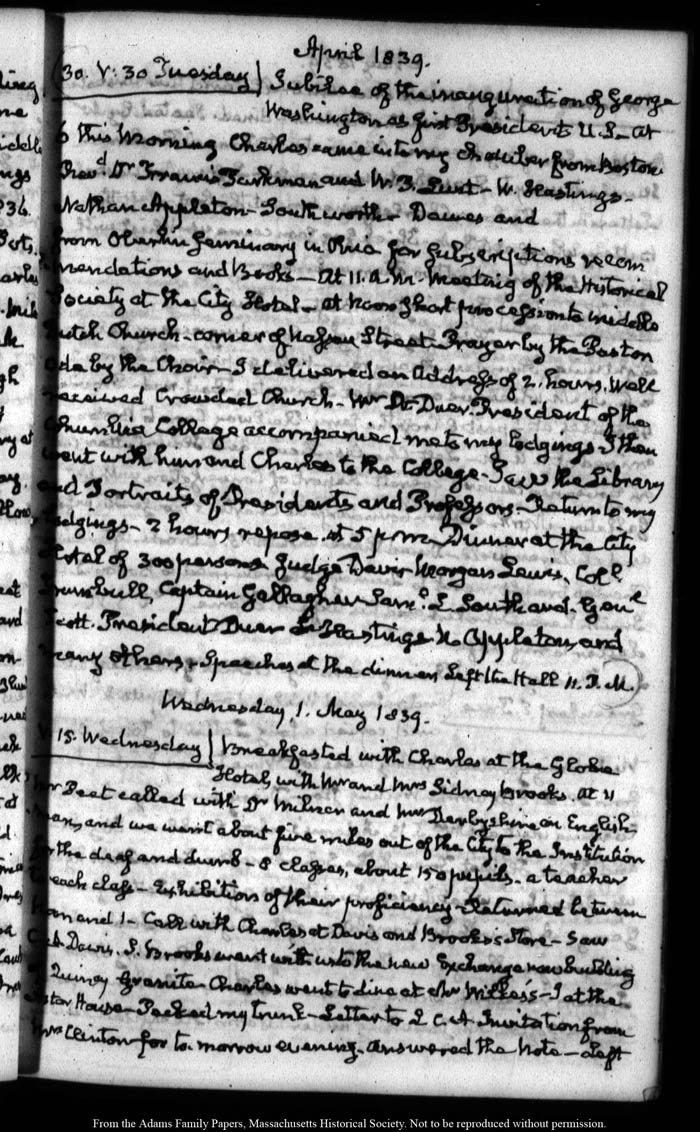 April 1839.
30. V:30 Tuesday) Jubilee of the inauguration of George
Washington as first President U.S. — at
6 this Morning Charles came into my chamber from Boston
Revd. Dr Francis Parkman and W. P. Lunt — W. Hastings —
Nathan Appleton — Southworth — Dawes and
from Oberlin Seminary in Ohio for subscriptions recom
mendations and Books — At 11. a.m. Meeting of the Historical
Society at the City Hotel — at Noon short procession to middle
Dutch Church — corner of Nassau Street. Prayer by the Pastor
Ode by the Choir — I delivered an Address of 2. hours. Well
received Crowded Church — Mr Duer. President of the
Columbia College accompanied me to my lodgings — I then
went with him and Charles to the College — Saw the Library
and Portraits of Presidents and Professors — Return to my
lodgings — 2 hours repose. at 5 p.m. Dinner at the City
Hotel of 300 persons Judge Davis Morgan Lewis, Coll.
Trumbull, Captain Gallagher Saml. L. Southard. Genl.
Scott. President Duer Hastings N Appleton, and
many others — Speeches at the dinner Left the Hall 11. P.M.
Wednesday. 1. May 1839.
V.15. Wednesday) Breakfasted with Charles at the Globe
Hotel, with Mr and Mrs Sidney Brooks. At 11
Mr Peet called with Dr Milnor and Mr Derbyshire an English
man, and we went about five miles out of the City to the Institution
for the deaf and dumb — 8 classes, about 150 pupils — a teacher
to each class — Exhibitions of their proficiency — Returned between
noon and 1 — Call with Charles at Davis and Brooks's Store — Saw
Davis. S. Brooks went with us to the new Exchange now building
of Quincy Granite — Charles went to dine at Mr Wilkes's — I at the
Astor House — Packed my trunk — Letter to L C. A Invitation from
Mrs Clinton for to-morrow evening. answered the note — Left
From the Adams Family Papers, Massachusetts Historical Society. Not to be reproduced without permission.